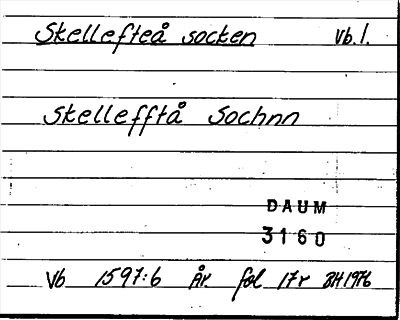 Skellefteå socken Vb.l.
Skellefftå Sochnn
DAUM
3160
Vb 1597:6 År fol 17r BH 1976